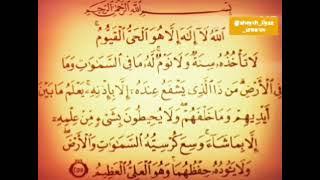 بِسْمِ اللَّهِ الرَّحْمَٰنِ الرَّحِيمِ
اللَّهُ لَا إِلَٰهَ إِلَّا هُوَ الْحَيُّ الْقَيُّومُ ۚ
لَا تَأْخُذُهُ سِنَةٌ وَلَا نَوْمٌ ۚ لَهُ مَا فِي السَّمَاوَاتِ وَمَا
فِي الْأَرْضِ ۗ مَنْ ذَا الَّذِي يَشْفَعُ عِنْدَهُ إِلَّا بِإِذْنِهِ ۚ يَعْلَمُ مَا بَيْنَ
أَيْدِيهِمْ وَمَا خَلْفَهُمْ ۖ وَلَا يُحِيطُونَ بِشَيْءٍ مِنْ عِلْمِهِ
إِلَّا بِمَا شَاءَ ۚ وَسِعَ كُرْسِيُّهُ السَّمَاوَاتِ وَالْأَرْضَ ۖ
وَلَا يَئُودُهُ حِفْظُهُمَا ۚ وَهُوَ الْعَلِيُّ الْعَظِيمُ ٢٥٥